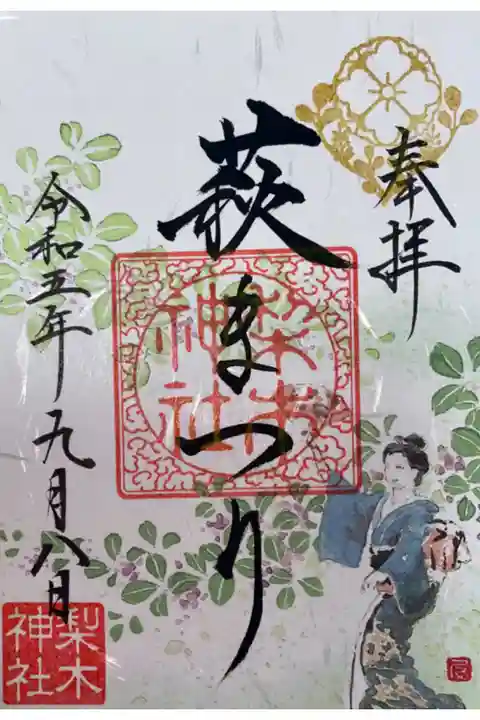 奉拝
萩まつり
梨木
神社
令和五年九月八日
梨木
神社